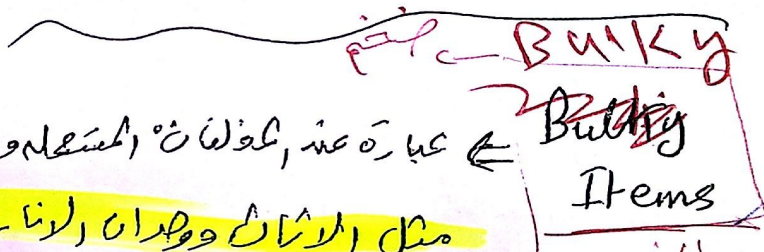 Bulky ← ضخم
Bulky
Items
← عبارة عن المخلفات المستعملة و
مثل الاثاث ووحدات الانا